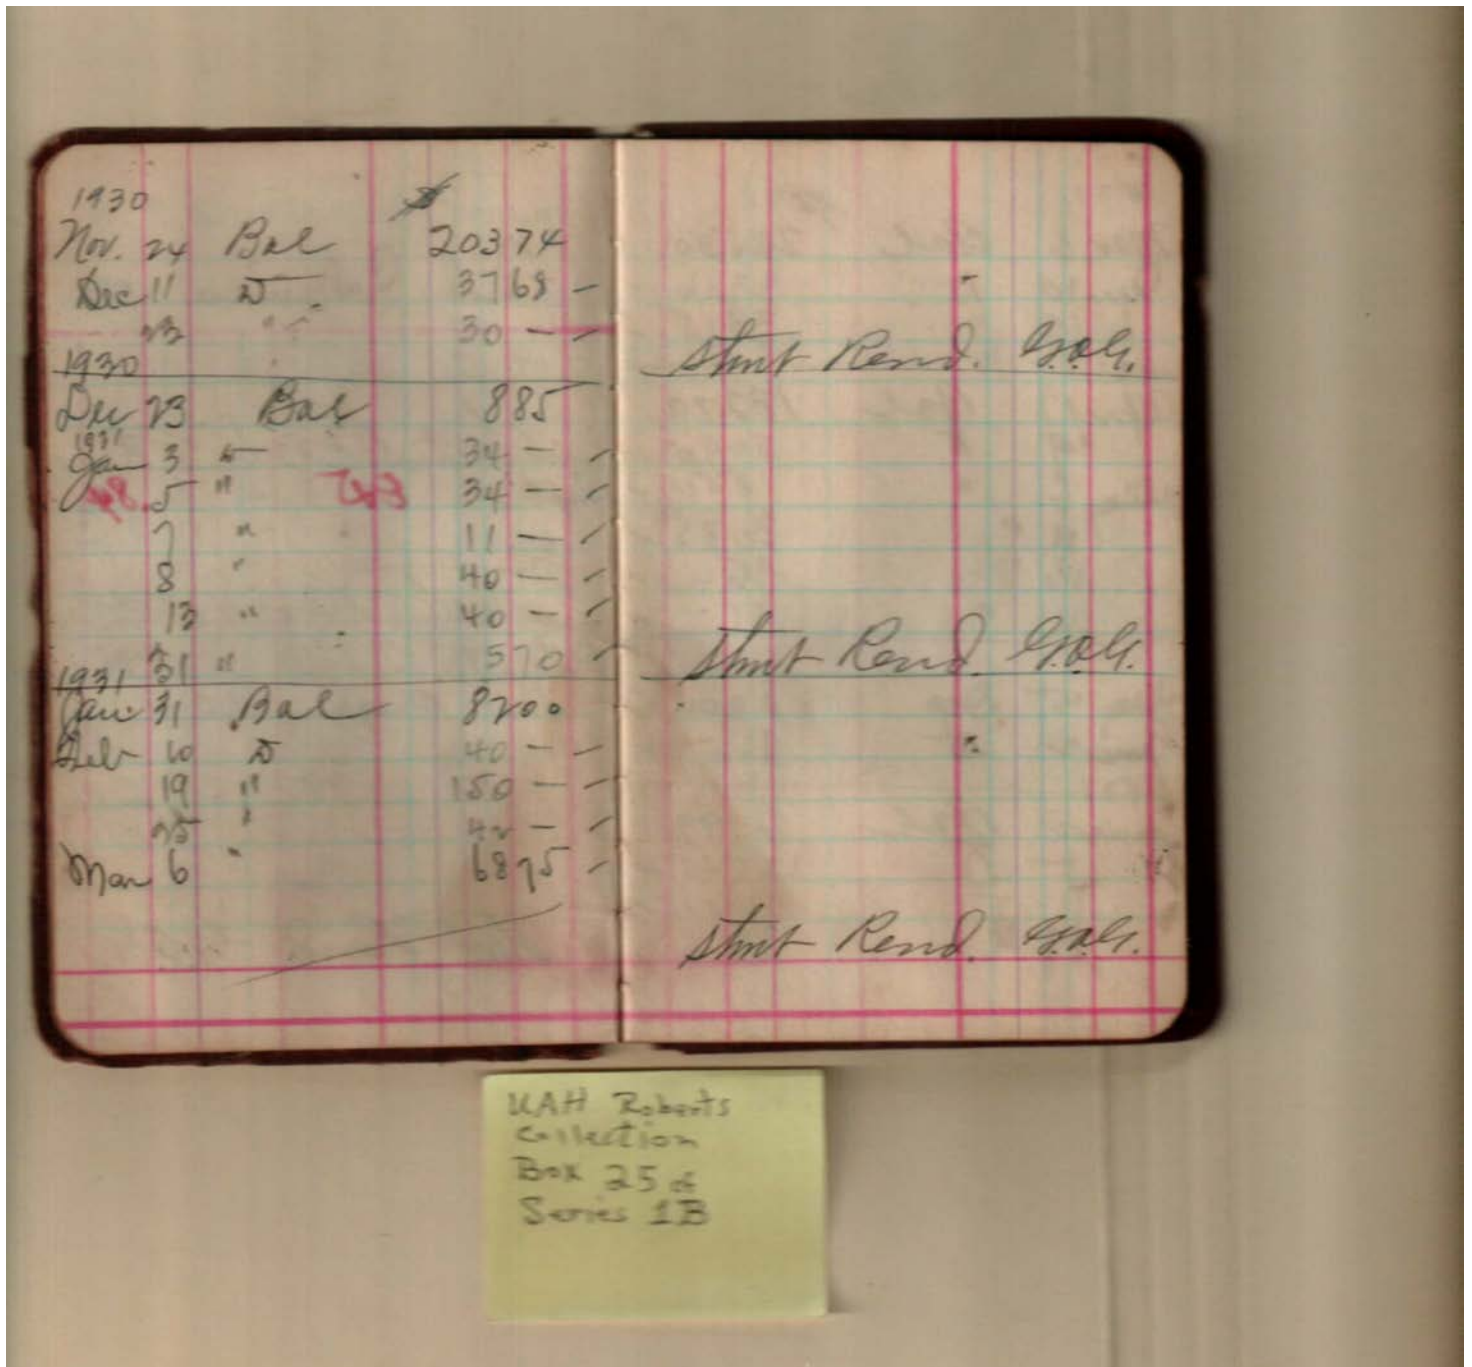 1930
Nov. 24 Bal 203 74
Dec 11 D 37 68 -
23 " 30 - -
1930
Dec 23 Bal 8 85
1931
Jan 3 D 34 - -
5 " 34 - -
7 " 11 - -
8 " 40 - -
13 " 40 - -
31 " 5 70 -
1931
Jan 31 Bal 82 00
Feb 10 D 40 - -
19 " 150 - -
25 " 42 - -
Mar 6 " 68 75 -
Stmt Rend. G.O.G.
Stmt Rend. G.O.G.
Stmt Rend. G.O.G.
UAH Roberts
Collection
Box 25 of
Series 1B